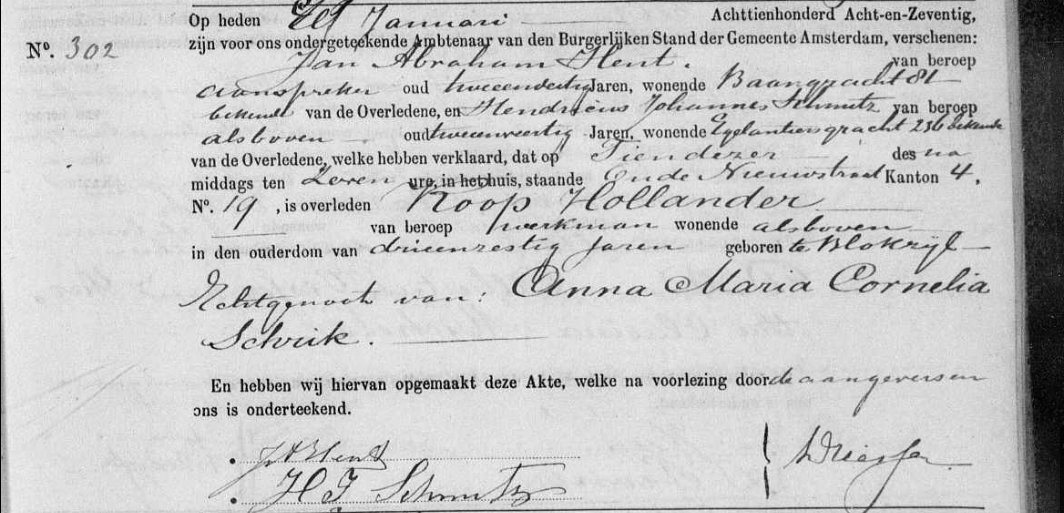 Op heden Elf Januari Achttienhonderd Acht-en-Zeventig,
Nº. 302 zijn voor ons ondergeteekende Ambtenaar van den Burgerlijken Stand der Gemeente Amsterdam, verschenen:
Jan Abraham Hent. van beroep
aanspreker oud tweeendertig Jaren, wonende Baangracht 81
bekende van de Overledene, en Hendricus Johannes Schmitz van beroep
alsboven oud tweeenveertig Jaren, wonende Egelantiersgracht 236 bekende
van de Overledene, welke hebben verklaard, dat op Tiendezer des na
middags ten Zeven ure, in het huis, staande Oude Nieuwstraat Kanton 4,
Nº. 19, is overleden Koop Hollander
van beroep werkman wonende alsboven
in den ouderdom van drieenzestig jaren geboren te Blokzijl
Echtgenoot van: Anna Maria Cornelia
Schrik.
En hebben wij hiervan opgemaakt deze Akte, welke na voorlezing door de aangevers en
ons is onderteekend.
JA Hent
H J Schmitz